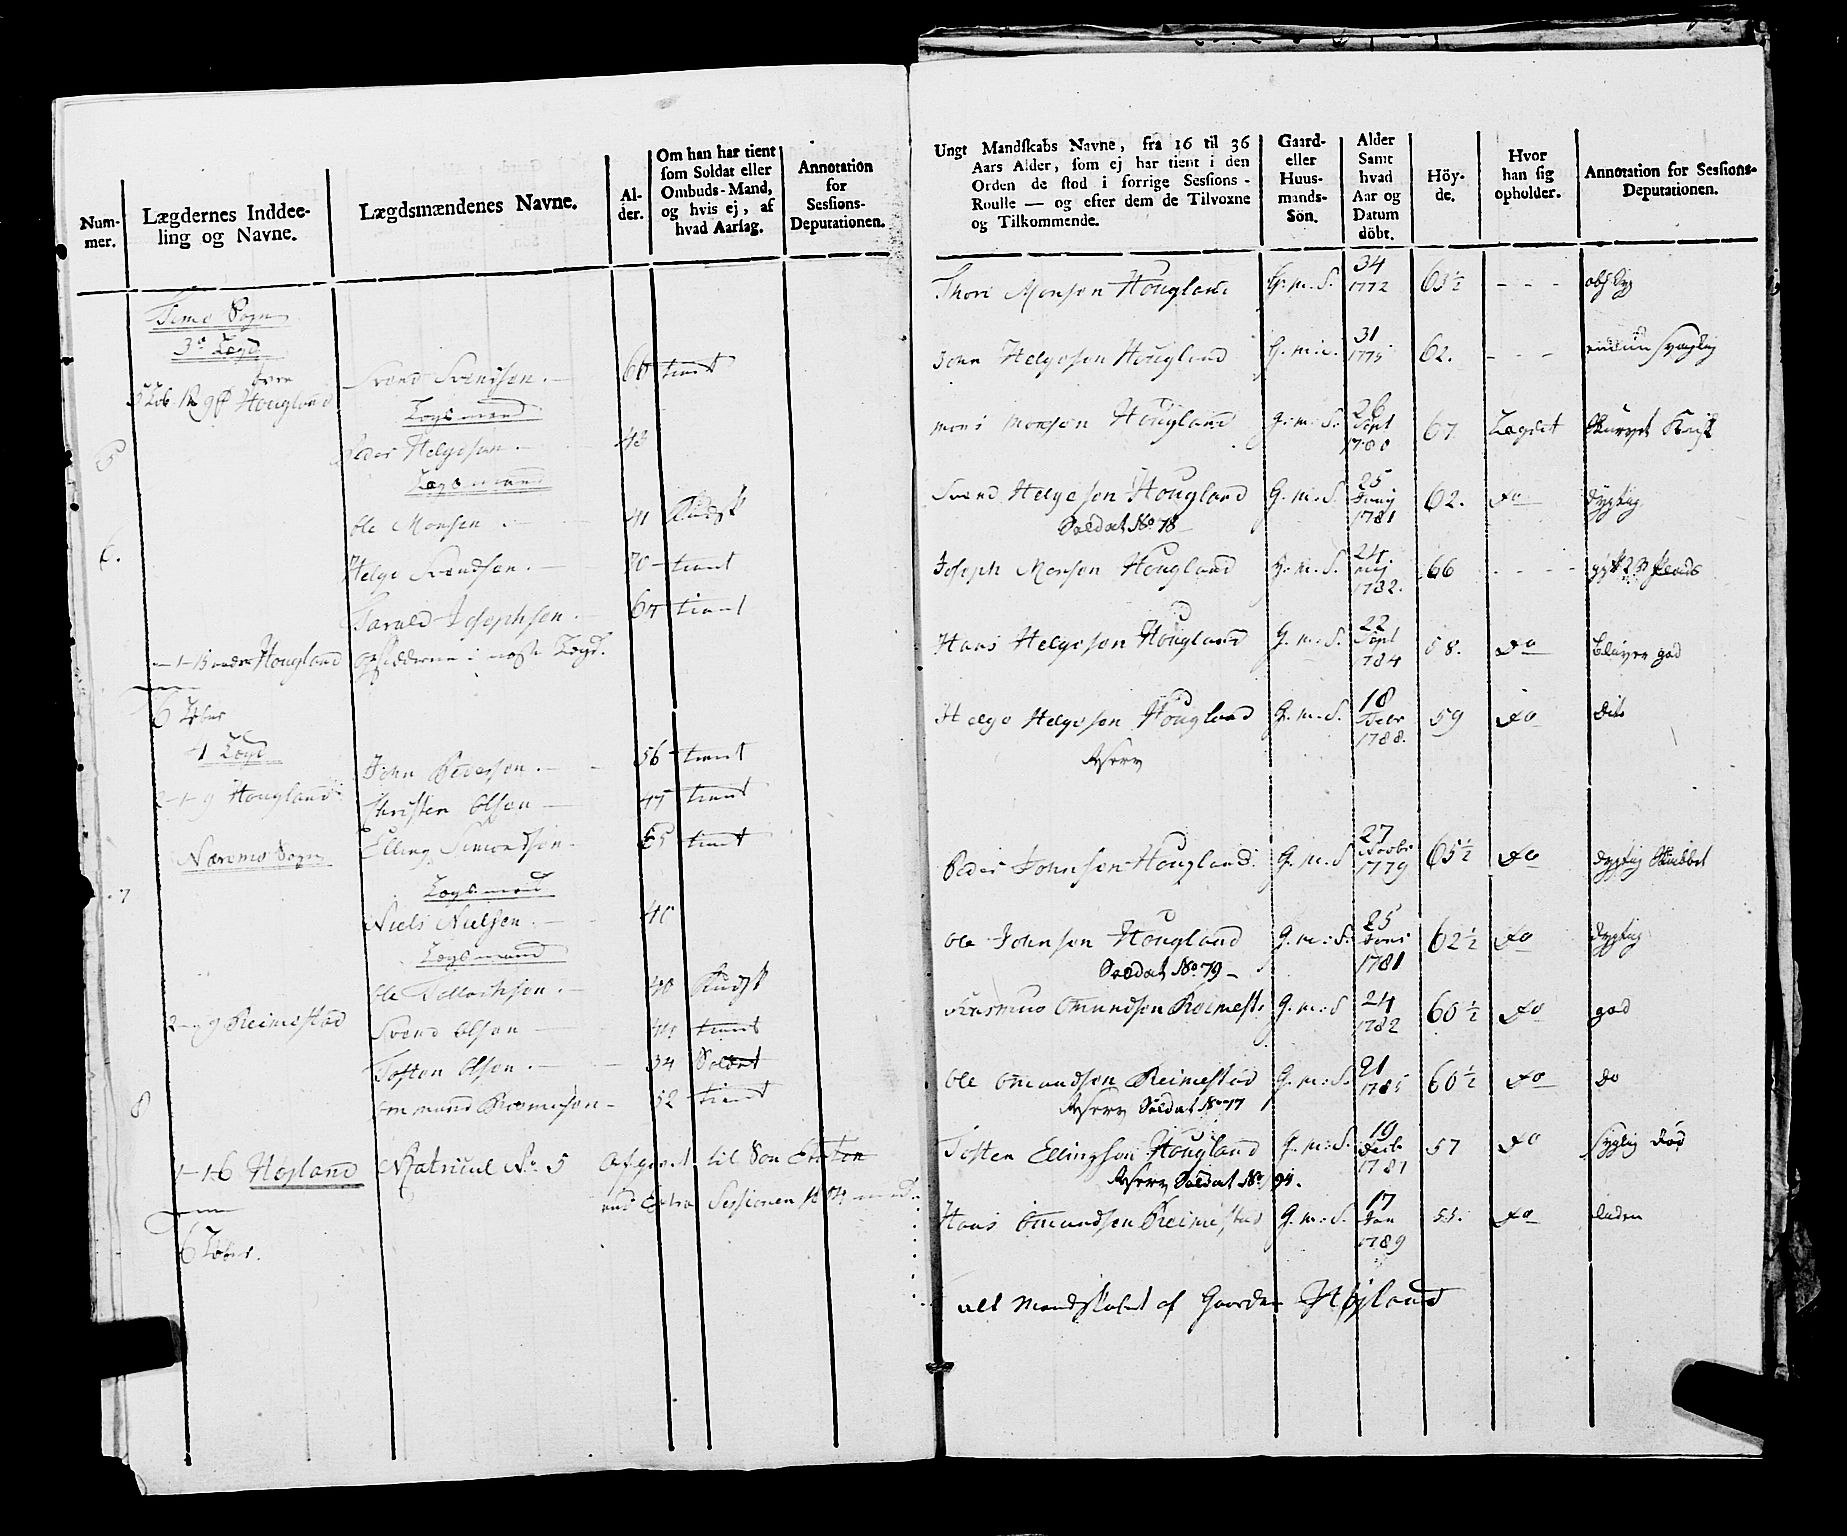 Num-
mer.
Lægdernes Inddee-
ling og Navne.
Lægdsmændenes Navne.
Al-
der.
Om han har tient
som Soldat eller
Ombuds-Mand,
og hvis ej, af
hvad Aarsag.
Annotation
for
Sessions-
Deputationen.
Time Sogn
3e Lægd
Svend Svensen. 60 tient
øvre
Hougland
Lægsmand
5
Peder Helgesen. 48
Lægsmand
Ole Monsen 41 Kudsk
6.
Helge Svendsen. 70 tient
Tarald Josephsen. 64 tient
Hougland Opsidderne i neste Lægd.
6
4 Lægd
John Pedersen. 56 tient
2-1-9 Hougland
Christen Olsen 45 tient
Elling Simondsen 55 tient
Næremo Sogn
Lægsmand
7
Niels Nielsen. 40
Lægsmand
Ole Tollachsen. 40 Kudsk
2-9 Reimestad
Svend Olsen 44 tient
Tosten Olsen. 34 Soldat
8
Ommund Rasmusen 52 tient
1-1-6 Højland Matricul No. 5 Afgivet til
Extra Sessionen
6
Ungt Mandskabs Navne, fra 16 til 36
Aars Alder, som ej har tient i den
Orden de stod i forrige Sessions-
Roulle — og efter dem de Tilvoxne
og Tilkommende.
Gaard-
eller
Huus-
mands-
Sön.
Alder
Samt
hvad
Aar og
Datum
döbt.
Höy-
de.
Hvor
han sig
opholder.
Annotation for Sessions-
Deputationen.
Thore Monsen Hougland G. m. S. 34 1772 63½ - - -
John Helgesen Hougland G. m. S. 31 1775 62. - - -
Mons Monsen Hougland G. m. S. 26 Sept 1780 67 Lægdet
Svend Helgesen Hougland G. m. S. 25 Juny 1781 62. Do dygtig
Soldat No 78
Joseph Monsen Hougland G. m. S. 24 1782. 66 - - -
Hans Helgesen Hougland G. m. S. 22 Sept 1784 58. Do bliver god
Helge Helgesen Hougland G. m. S. 18 Febr 1788. 59 Do dito
Reserv
Peder Johnsen Hougland. G. m. S 27 Novbr 1779 65½ Do dygtig
Ole Johnsen Hougland G. m. S. 25 Juni 1781 62½ Do dygtig
Soldat No. 79
Rasmus Omundsen Reimest. G. m. S 24 1782 60½ Do god
Ole Omundsen Reimestad G. m. S. 21 1785 60½ Do do
Reserv Soldat No 77
Tosten Ellingsen Hougland G. m. S. 19 1781 57 Do død
Reserv Soldat No. 94.
Hans Omundsen Reimestad G. m. S. 17 Jan 1789 55. Do liden
alt Mandskabet af Gaarden Højland